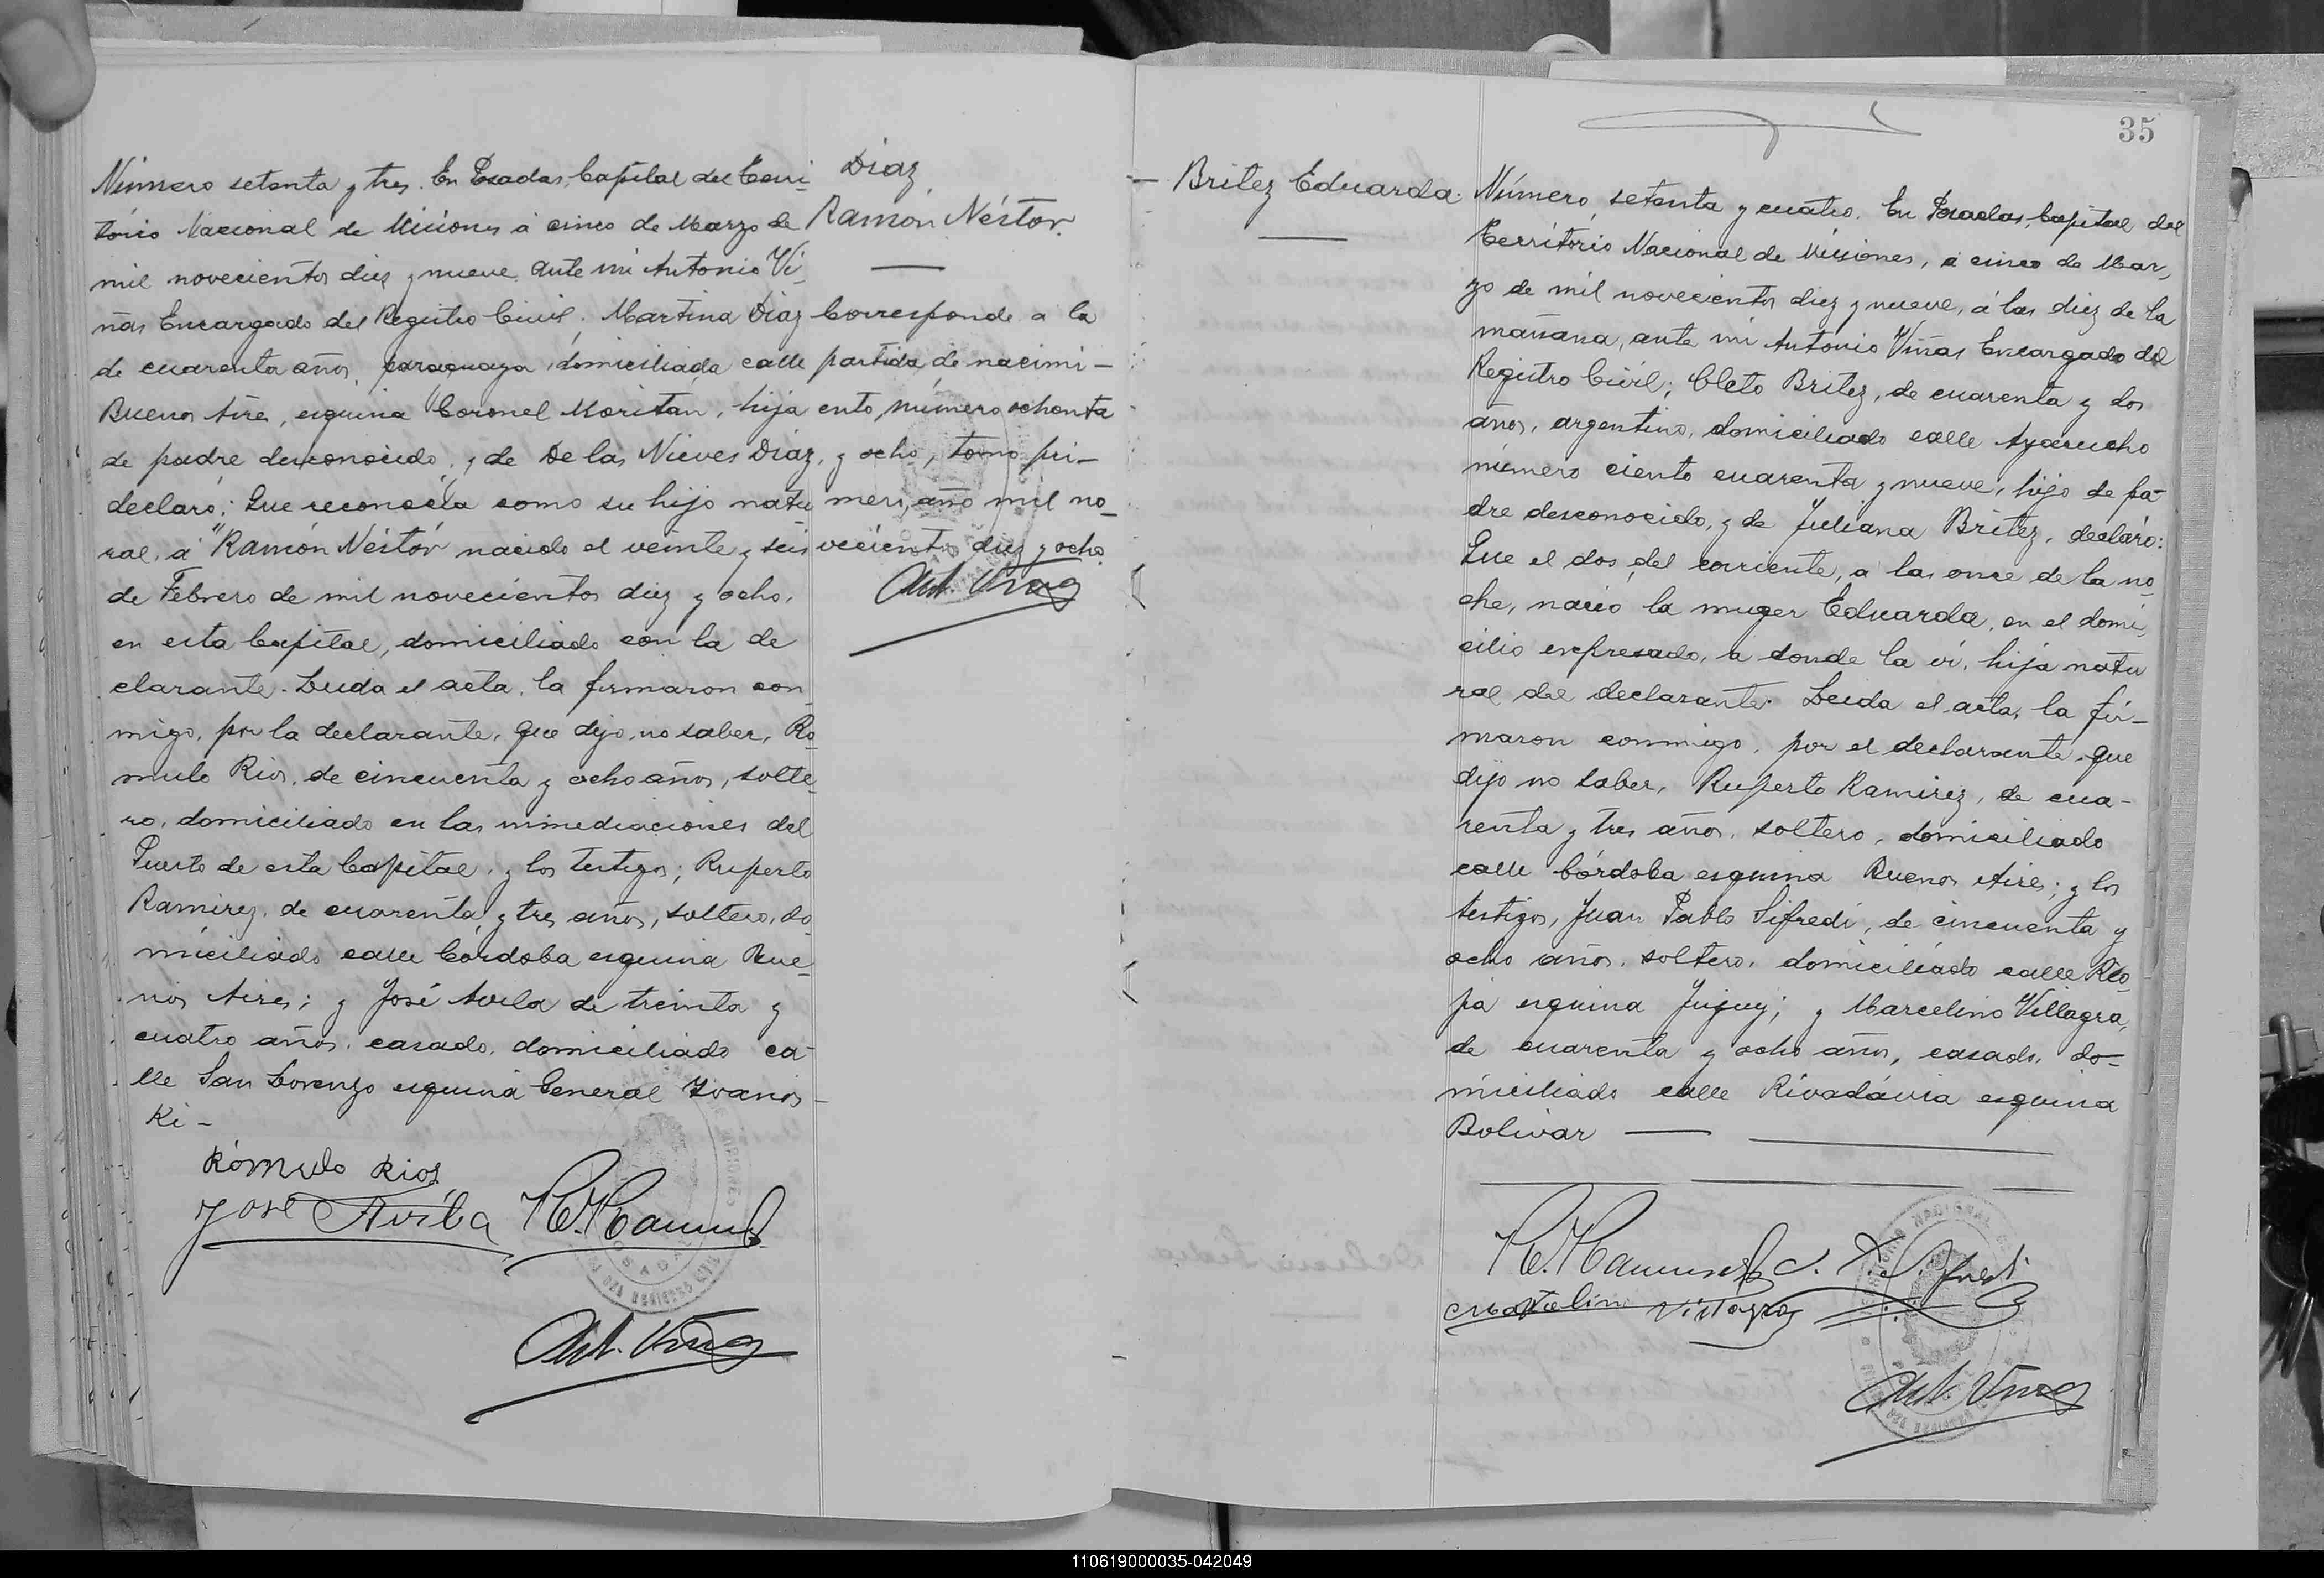 Número setenta y tres. En Posadas, Capital del Terri-
tório Nacional de Misiones á cinco de Marzo de
mil novecientos diez y nueve. ante mi Antonio Vi-
ñas Encargado del Registro Civil. Martina Diaz
de cuarenta años, paraguaya, domiciliada calle
Buenos Aires, esquina Coronel Moritán, hija
de padre desconocido, y de De las Nieves Diaz,
declaró: Que reconocía como su hijo natu
ral, á "Ramón Néstór nacido el veinte y seis
de Febrero de mil novecientos diez y ocho,
en esta Capital, domiciliado con la de
clarante. Leida el acta, la firmaron con
migo, por la declarante, que dijo no saber, Ró
mulo Rios, de cincuenta y ocho años, solte
ro, domiciliado en las inmediaciones del
Puerto de esta Capital, y los testigos; Ruperto
Ramirez, de cuarenta y tres años, soltero, do
miciliado calle Córdoba esquina Bue
nos Aires; y José Avila de treinta y
cuatro años, casado, domiciliado ca-
lle San Lorenzo esquina General Ivanos-
ki -
Rómulo Rios
José Avila R. Ramirez
Ant. Viñas
Diaz
Ramón Néstor.
Corresponde a la
partida de nacimi-
ento, número ochenta
y ocho, tomo pri-
mero, año mil no-
vecientos diez y ocho
Ant. Viñas
35
Britez Eduarda.
Número setenta y cuatro. En Posadas, Capital del
Território Nacional de Misiones, a cinco de Mar,
zo de mil novecientos diez y nueve, á las diez de la
mañana, ante mi Antonio Viñas Encargado del
Registro Civil; Cleto Britez, de cuarenta y dos
años, argentino, domiciliado calle Ayacucho
número ciento cuarenta y nueve, hijo de pa-
dre desconocido, y de Juliana Britez, declaró:
Que el dos del corriente, a las once de la no
che, nació la muger Eduarda, en el domi,
cilio expresado, a donde la ví, hija natu
ral del declarante. Leida el acta, la fir-
maron conmigo, por el declarante, que
dijo no saber, Ruperto Ramirez, de cua-
renta y tres años, soltero, domiciliado
calle Córdoba esquina Buenos Aires; y los
testigos, Juan Pablo Sifredi, de cincuenta y
ocho años, soltero, domiciliado calle Rio-
ja esquina Jujuy; y Marcelino Villagra,
de cuarenta y ocho años, casado, do-
miciliado calle Rivadávia esquina
Bolivar
R. Ramirez J. P. Sifredi
Marcelino Villagra
Ant. Viñas
110619000035-042049